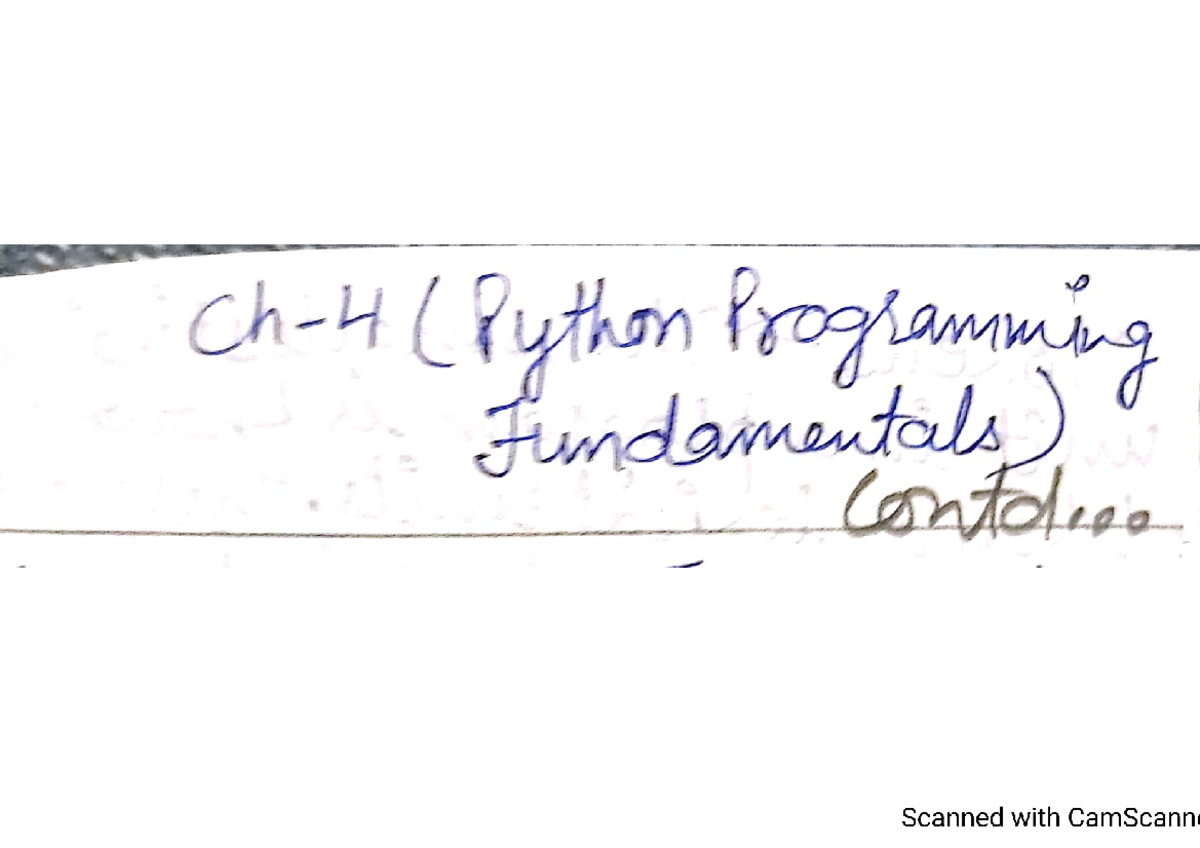 Ch-4 (Python Programming
Fundamentals)
Contd...
Scanned with CamScanne